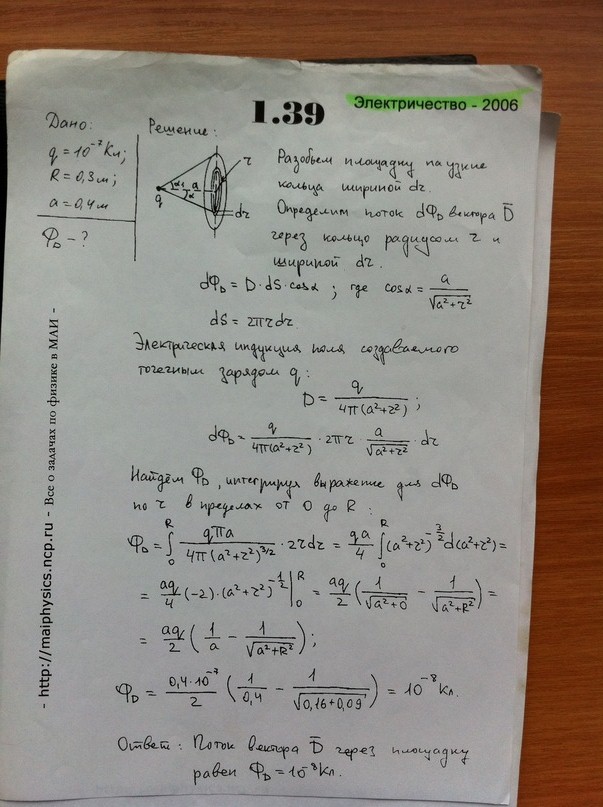 1.39
Электричество - 2006
Дано:
q = 10⁻⁷ Кл;
R = 0,3 м;
a = 0,4 м
Φ_D - ?
Решение:
q
α
a
α
r
dr
Разобьем площадку на узкие
кольца шириной dr.
Определим поток dΦ_D вектора D̅
через кольцо радиусом r и
шириной dr.
dΦ_D = D · dS · cosα ; где cosα = a/√(a²+r²)
dS = 2πrdr
Электрическая индукция поля создаваемого
точечным зарядом q :
D = q/(4π(a²+r²)) ;
dΦ_D = q/(4π(a²+r²)) · 2πr · a/√(a²+r²) · dr
Найдём Φ_D, интегрируя выражение для dΦ_D
по r в пределах от 0 до R :
Φ_D = ∫₀ᴿ qπa/(4π(a²+r²)^(3/2)) · 2rdr = qa/4 ∫₀ᴿ (a²+r²)^(-3/2) d(a²+r²) =
= aq/4 (-2)·(a²+r²)^(-1/2) |₀ᴿ = aq/2 (1/√(a²+0) - 1/√(a²+R²)) =
= aq/2 (1/a - 1/√(a²+R²)) ;
Φ_D = 0,4·10⁻⁷/2 (1/0,4 - 1/√(0,16+0,09)) = 10⁻⁸ Кл.
Ответ : Поток вектора D̅ через площадку
равен Φ_D = 10⁻⁸ Кл.
- http://maiphysics.ncp.ru - Все о задачах по физике в МАИ -